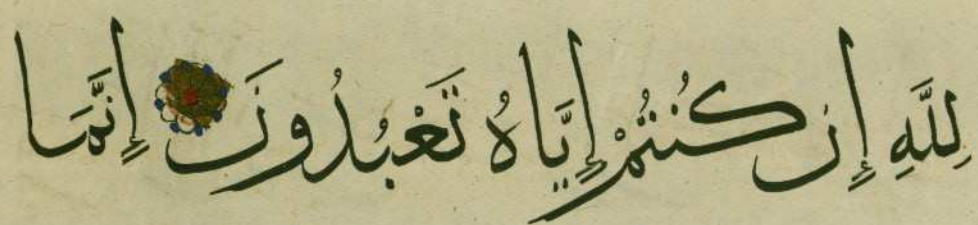 لِلَّهِ إِن كُنتُمْ إِيَّاهُ تَعْبُدُونَ إِنَّمَا